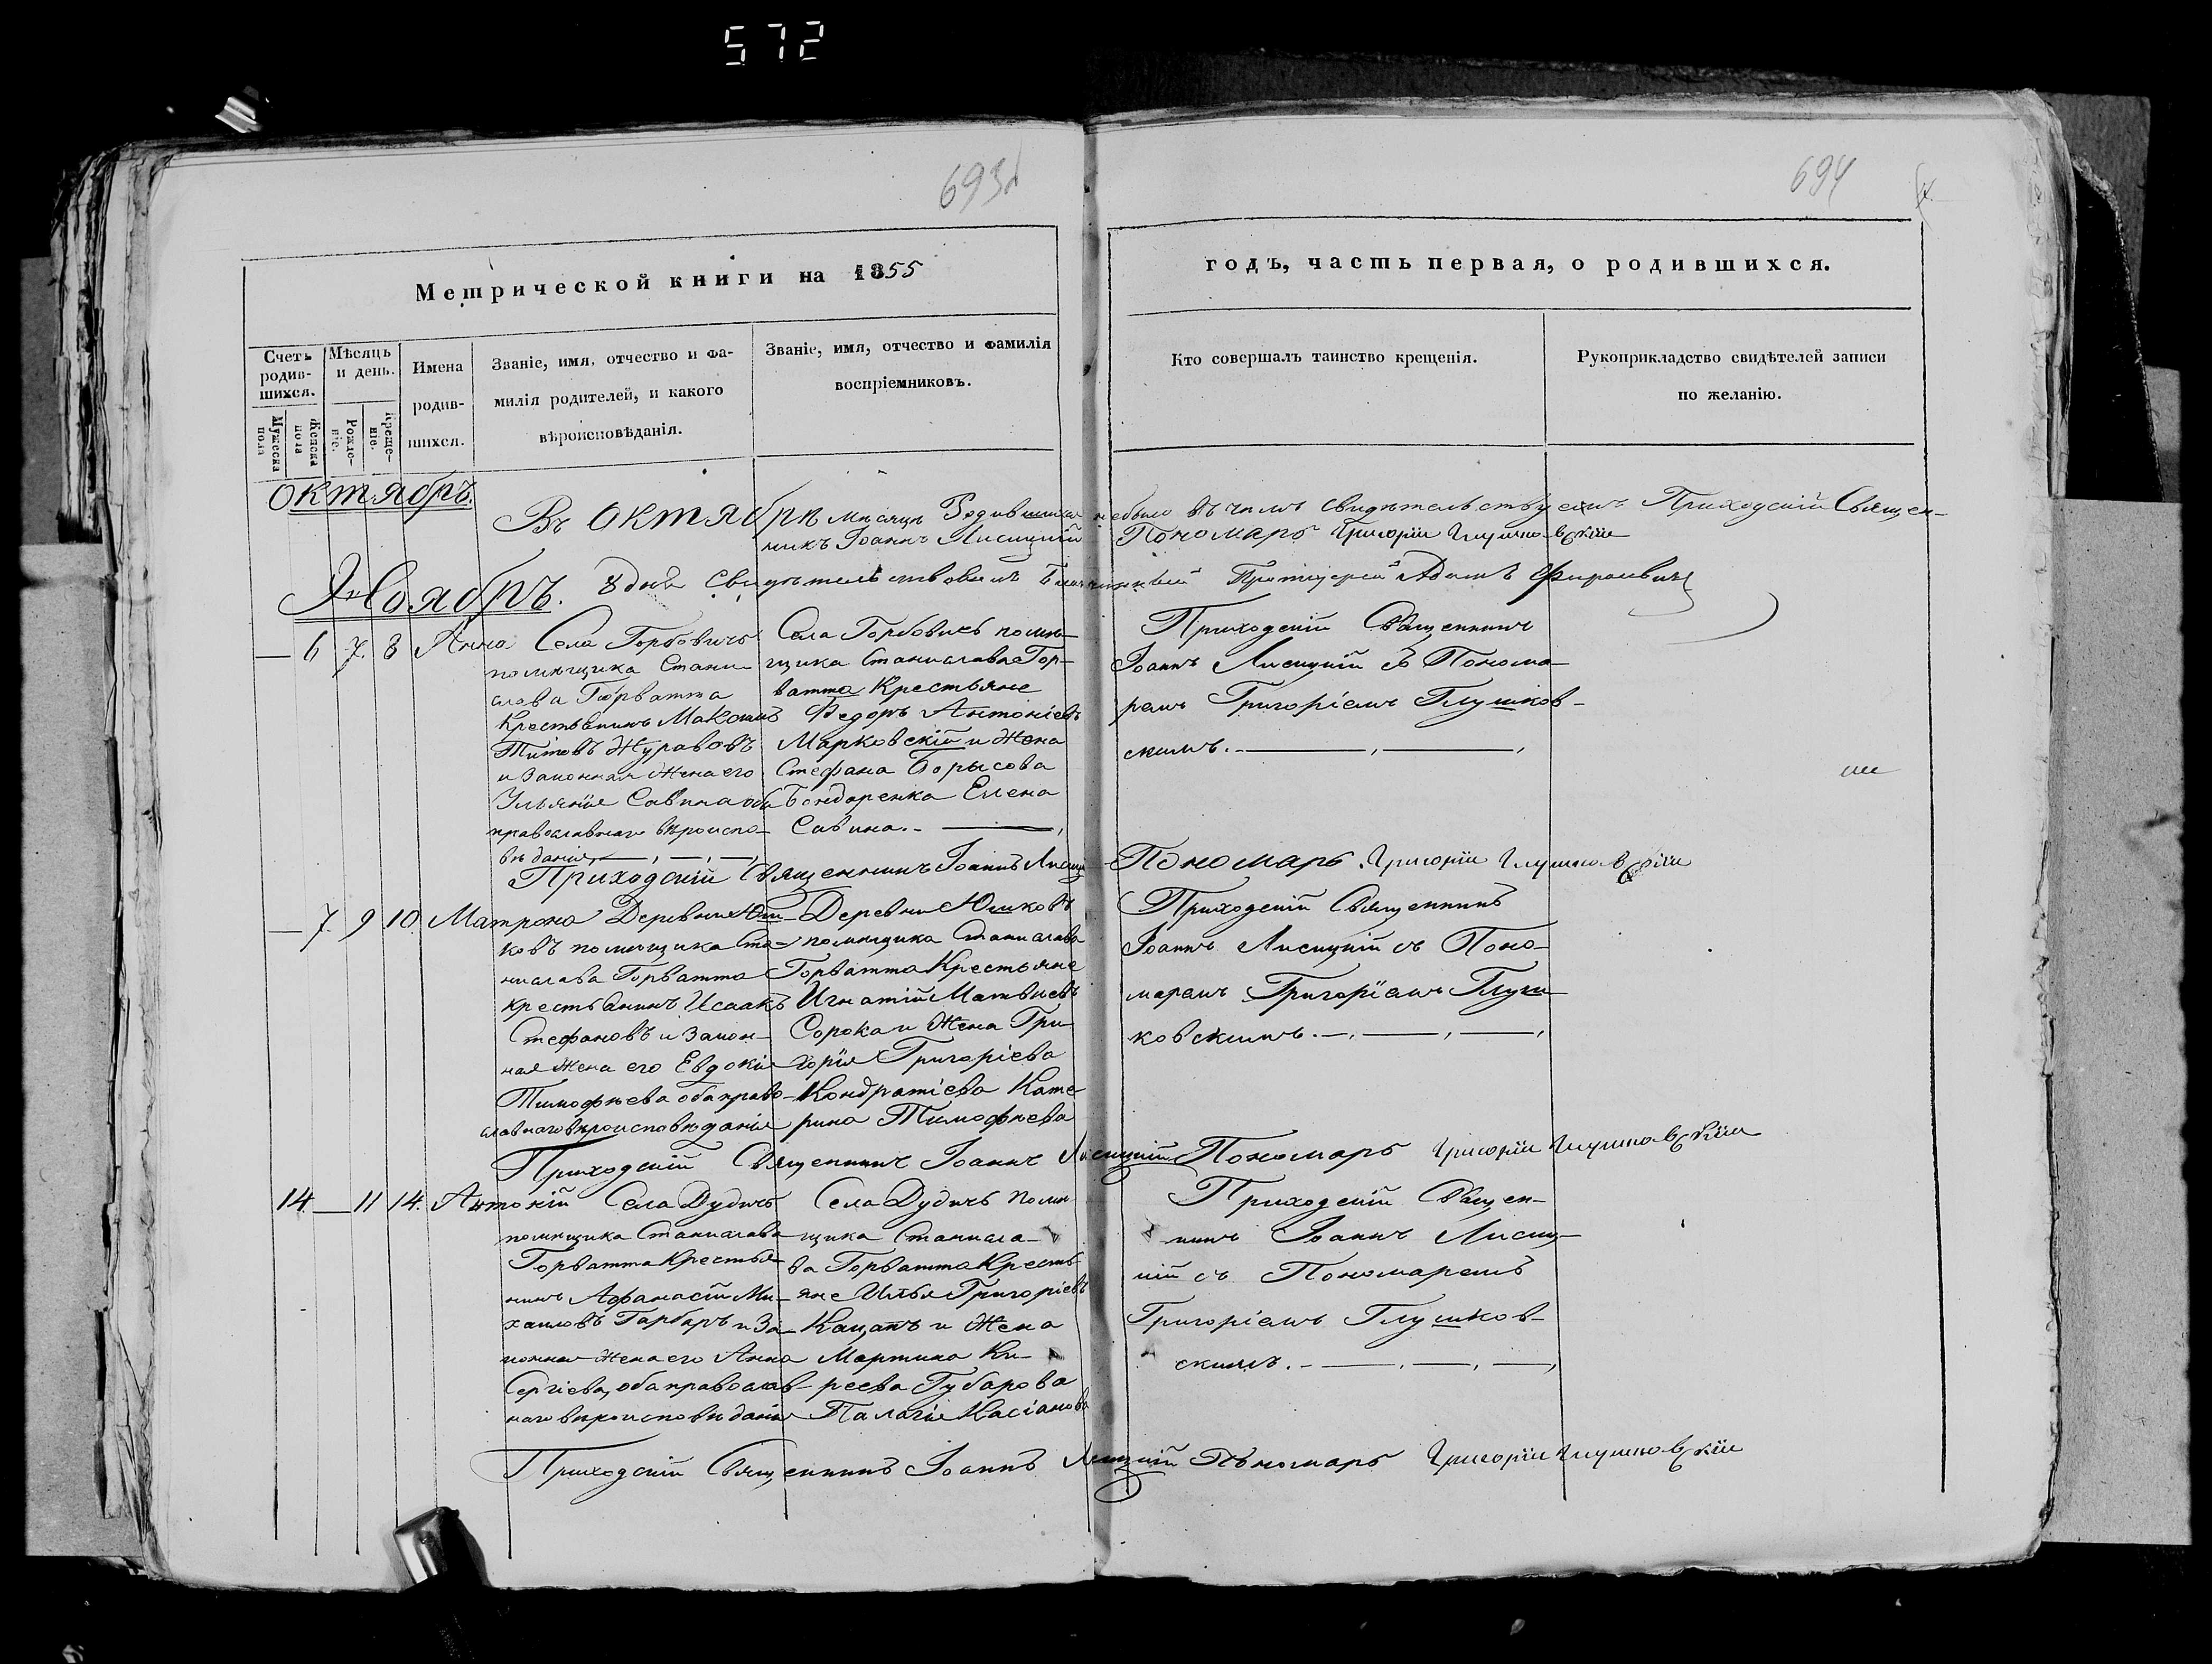 572
693
694
Метрической книги на 1855
годъ, часть первая, о родившихся.
Счетъ родив-шихся.
Мужеска пола
Женска пола
Мѣсяцъ и день.
Рожде-ніе.
Креще-ніе.
Имена
родив-
шихся.
Званіе, имя, отчество и фа-
милія родителей, и какого
вѣроисповѣданія.
Званіе, имя, отчество и фамилія
воспріемниковъ.
Кто совершалъ таинство крещенія.
Рукоприкладство свидѣтелей записи
по желанію.
Октябрь.
Въ Октябрѣ мѣсяцѣ Родившихся небыло въ чемъ свидѣтельствуемъ Приходскій Священ-
никъ Іоаннъ Лисицкій Пономарь Григорій Глушковскій
Ноябрь. 8 дня Свидѣтельствовалъ Благочинный Протоіерей Адамъ
— 6 7. 8 Анна
Села Горбовичъ
помѣщика Стани-
слава Горватта
Крестьянинъ Максимъ
Титовъ Журавовъ
и Законная Жена его
Ульянія Савина оба
православнаго вѣроиспо-
вѣданія,
Села Горбовичъ помѣ-
щика Станислава Гор-
ватта Крестьяне
Федоръ Антоніевъ
Марковскій и Жена
Стефана Борысова
Бондаренка Елена
Савина.
Приходскій Священникъ
Іоаннъ Лисицкій съ Понома-
ремъ Григоріемъ Глушков-
скимъ.
Приходскій Священникъ Іоаннъ Лисицкій Пономарь Григорій Глушковскій
— 7. 9 10. Матрона
Деревни Юш-
ковъ помѣщика Ста-
нислава Горватта
крестьянинъ Исаакъ
Стефановъ и Закон-
ная Жена его Евдокія
Тимофѣева оба право-
славнаго вѣроисповѣданія
Деревни Юшковъ
помѣщика Станислава
Горватта Крестьяне
Игнатій Матвѣевъ
Сорока и Жена Гри-
горія Григоріева
Кондратіева Кате-
рина Тимофѣева
Приходскій Священникъ
Іоаннъ Лисицкій съ Поно-
маремъ Григоріемъ Глуш-
ковскимъ.
Приходскій Священникъ Іоаннъ Лисицкій Пономарь Григорій Глушковскій
14. — 11 14. Антоній
Села Дудичъ
помѣщика Станислава
Горватта Крестья-
нинъ Афанасій Ми-
хаиловъ Гарбаръ и За-
конная Жена его Анна
Сергіева, оба православ-
наго вѣроисповѣданія
Села Дудичъ помѣ-
щика Станисла-
ва Горватта Кресть-
яне Илья Григоріевъ
Кацапъ и Жена
Мартина Ки-
реева Губарова
Палагія Касіанова
Приходскій Священ-
никъ Іоаннъ Лисиц-
кій съ Пономаремъ
Григоріемъ Глушков-
скимъ.
Приходскій Священникъ Іоаннъ Лисицкій Пономарь Григорій Глушковскій